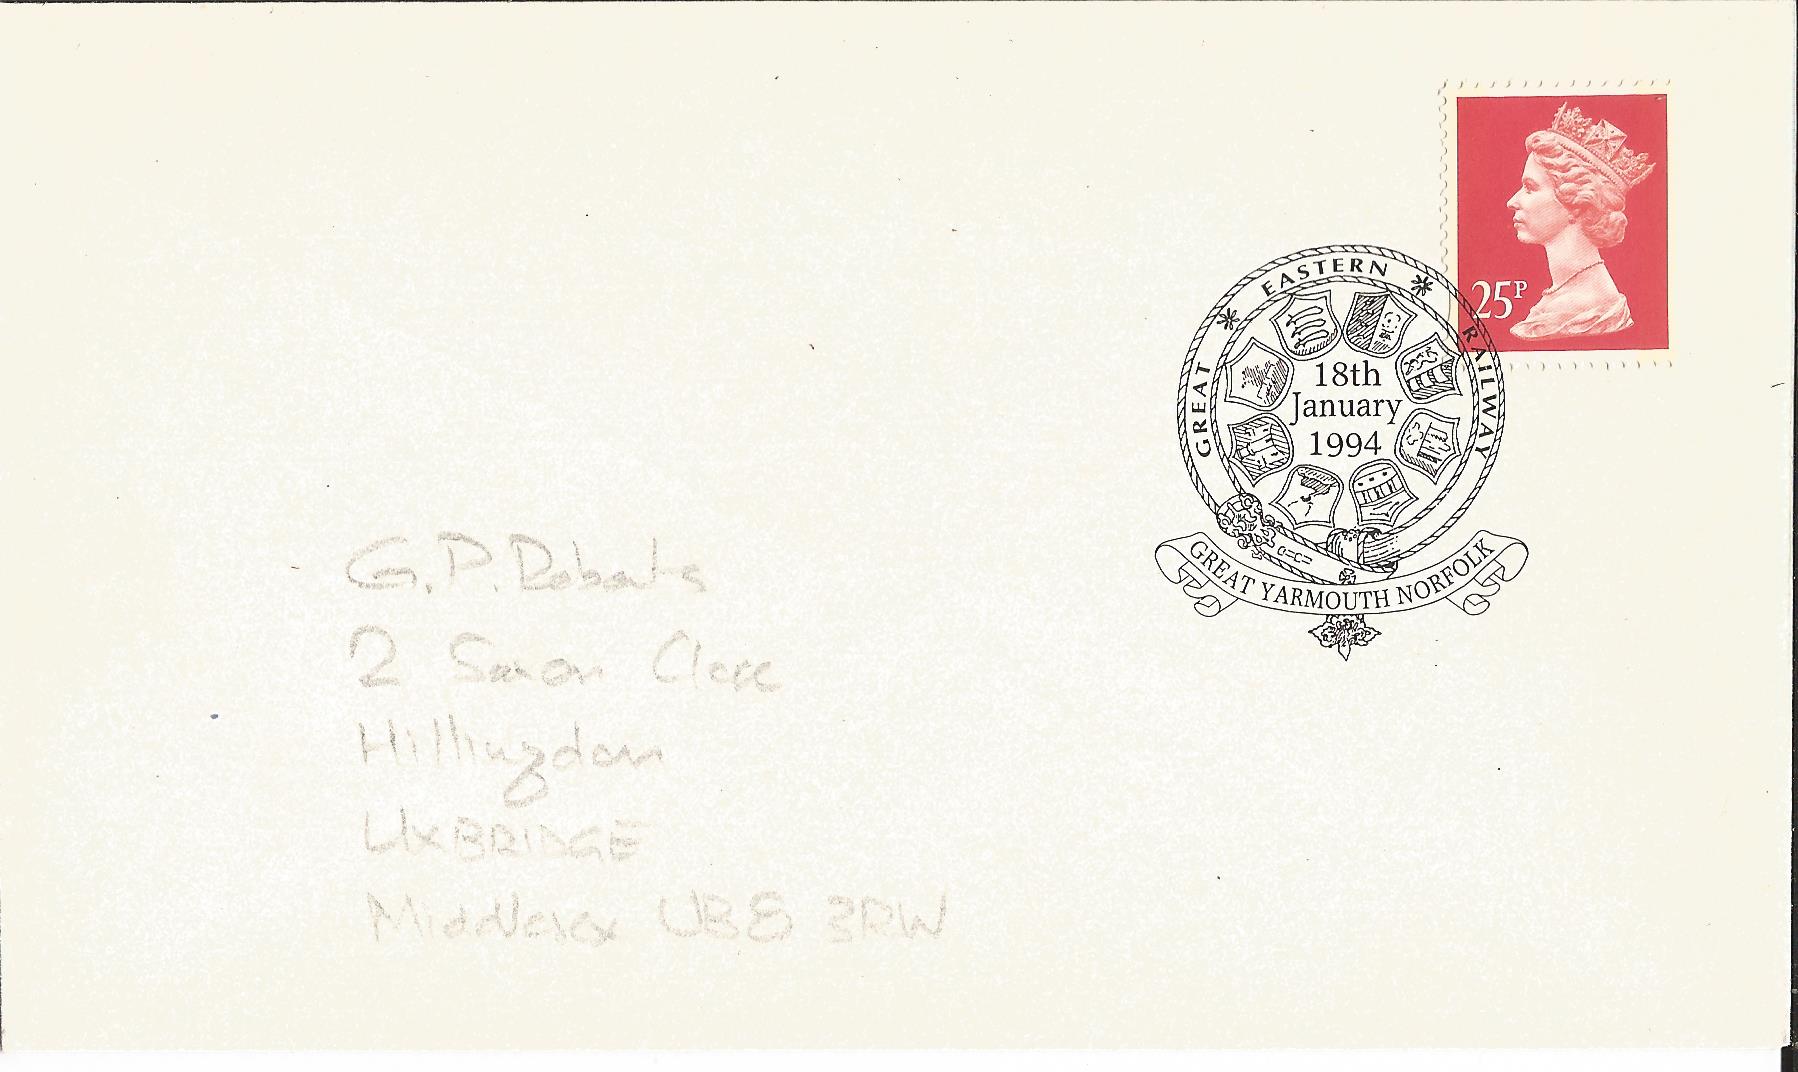 25P
GREAT * EASTERN * RAILWAY
18th
January
1994
GREAT YARMOUTH NORFOLK
G.P. Roberts
2 Simon Close
Hillingdon
UXBRIDGE
Middlesex UB8 3RW